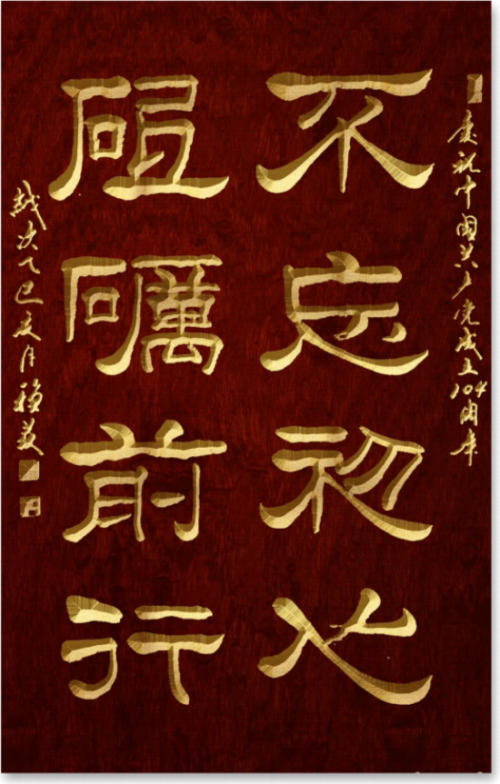 庆祝中国共产党成立104周年
不忘初心
砥砺前行
岁次乙巳夏月